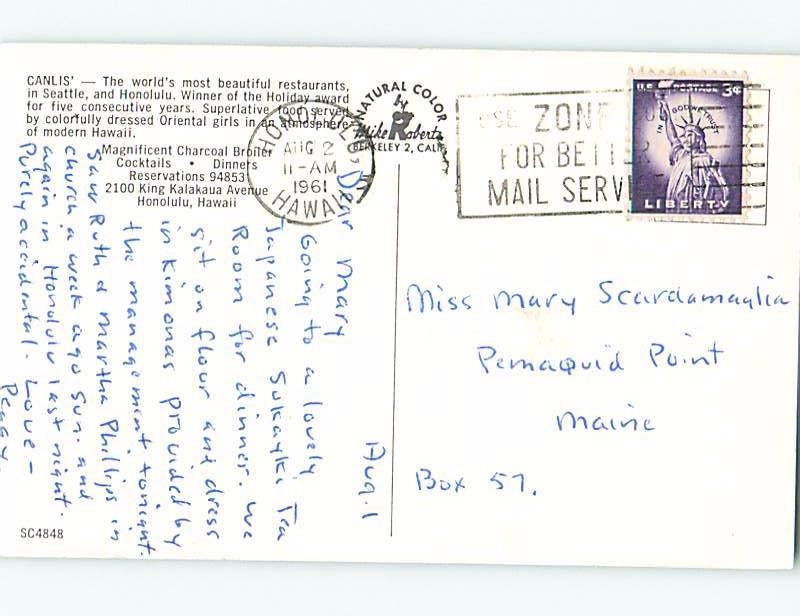 CANLIS' — The world's most beautiful restaurants,
in Seattle, and Honolulu. Winner of the Holiday award
for five consecutive years. Superlative food served
by colorfully dressed Oriental girls in an atmosphere
of modern Hawaii.
Magnificent Charcoal Broiler
Cocktails • Dinners
Reservations 94853
2100 King Kalakaua Avenue
Honolulu, Hawaii
NATURAL COLOR
Mike Roberts
BERKELEY 2, CALIF
HONOLULU
AUG 2
11-AM
1961
HAWAII
USE ZONE
FOR BETTER
MAIL SERVI
U.S. POSTAGE 3¢
IN GOD WE TRUST
LIBERTY
Aug. 1
Dear Mary
Going to a lovely
Japanese Sukayki Tea
Room for dinner. We
sit on flour and dress
in Kimonas provided by
the management tonight.
Saw Ruth & Martha Phillips in
church a week ago Sun. and
again in Honolulu last night.
Purely accidental. Love —
Peggy.
Miss Mary Scardamaglia
Pemaquid Point
Maine
Box 57.
SC4848